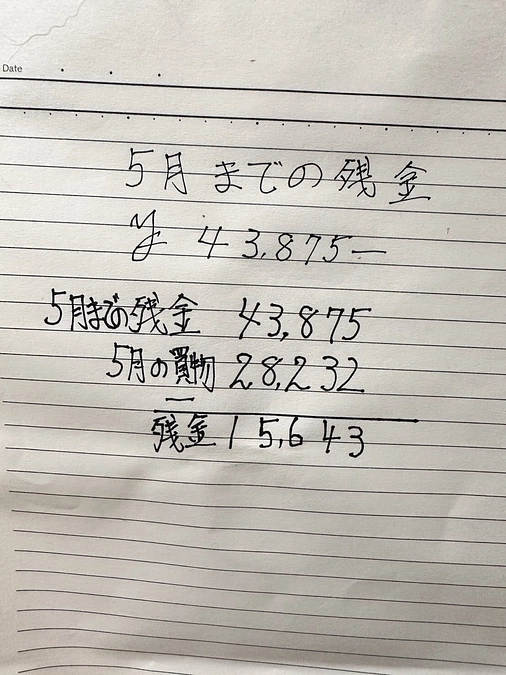 Date
5月までの残金
¥ 43,875―
5月までの残金 43,875
5月の買物 28,232
―
残金 15,643